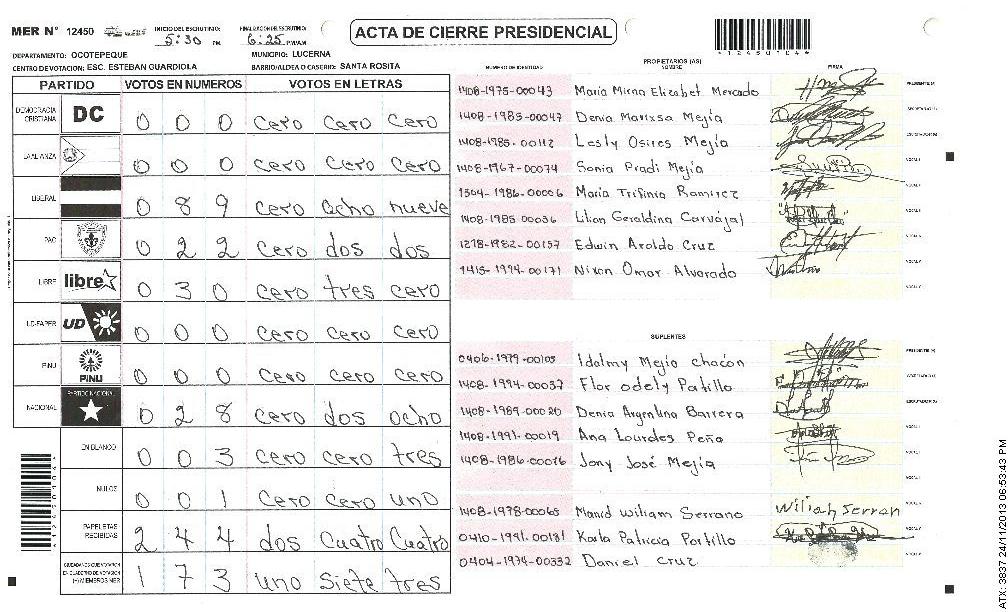 MER N° 12450
INICIO DEL ESCRUTINIO: 5:30 PM
FINALIZACION DEL ESCRUTINIO: 6:25 P.M/A.M
ACTA DE CIERRE PRESIDENCIAL
DEPARTAMENTO: OCOTEPEQUE MUNICIPIO: LUCERNA
CENTRO DE VOTACION: ESC. ESTEBAN GUARDIOLA BARRIO/ALDEA O CASERIO: SANTA ROSITA
PARTIDO VOTOS EN NUMEROS VOTOS EN LETRAS
DEMOCRACIA CRISTIANA DC 0 0 0 cero cero cero
LA ALIANZA 0 0 0 cero cero cero
LIBERAL 0 8 9 cero ocho nueve
PAC 0 2 2 cero dos dos
LIBRE libre 0 3 0 cero tres cero
UD-FAPER UD 0 0 0 cero cero cero
PINU PINU 0 0 0 cero cero cero
NACIONAL PARTIDO NACIONAL 0 2 8 cero dos ocho
EN BLANCO 0 0 3 cero cero tres
NULOS 0 0 1 cero cero uno
PAPELETAS RECIBIDAS 2 4 4 dos cuatro cuatro
CIUDADANOS QUE VOTARON EN CUADERNO DE VOTACION (+) MIEMBROS MER 1 7 3 uno siete tres
NUMERO DE IDENTIDAD PROPIETARIOS (AS) NOMBRE FIRMA
1408-1975-00043 Maria Mirna Elizabet Mercado
1408-1985-00047 Denia Marixsa Mejía
1408-1985-00112 Lesly Osires Mejía
1408-1967-00074 Sonia Pradi Mejía
1304-1986-00006 María Trifinia Ramirez
1408-1985-00036 Lilian Geraldina Carvajal
1218-1982-00157 Edwin Aroldo Cruz
1415-1994-00171 Nixon Omar Alvarado
SUPLENTES
0406-1979-00105 Idalmy Mejia chacón
1408-1994-00037 Flor odely Patillo
1408-1989-00020 Denia Argentina Barrera
1408-1991-00019 Ana Lourdes Peña
1408-1986-00076 Jony José Mejía
1408-1978-00065 Manid Wiliam Serrano
0410-1991-00181 Karla Patricia Portillo
0404-1974-00332 Daniel Cruz
ATX: 3837 24/11/2013 06:53:43 PM